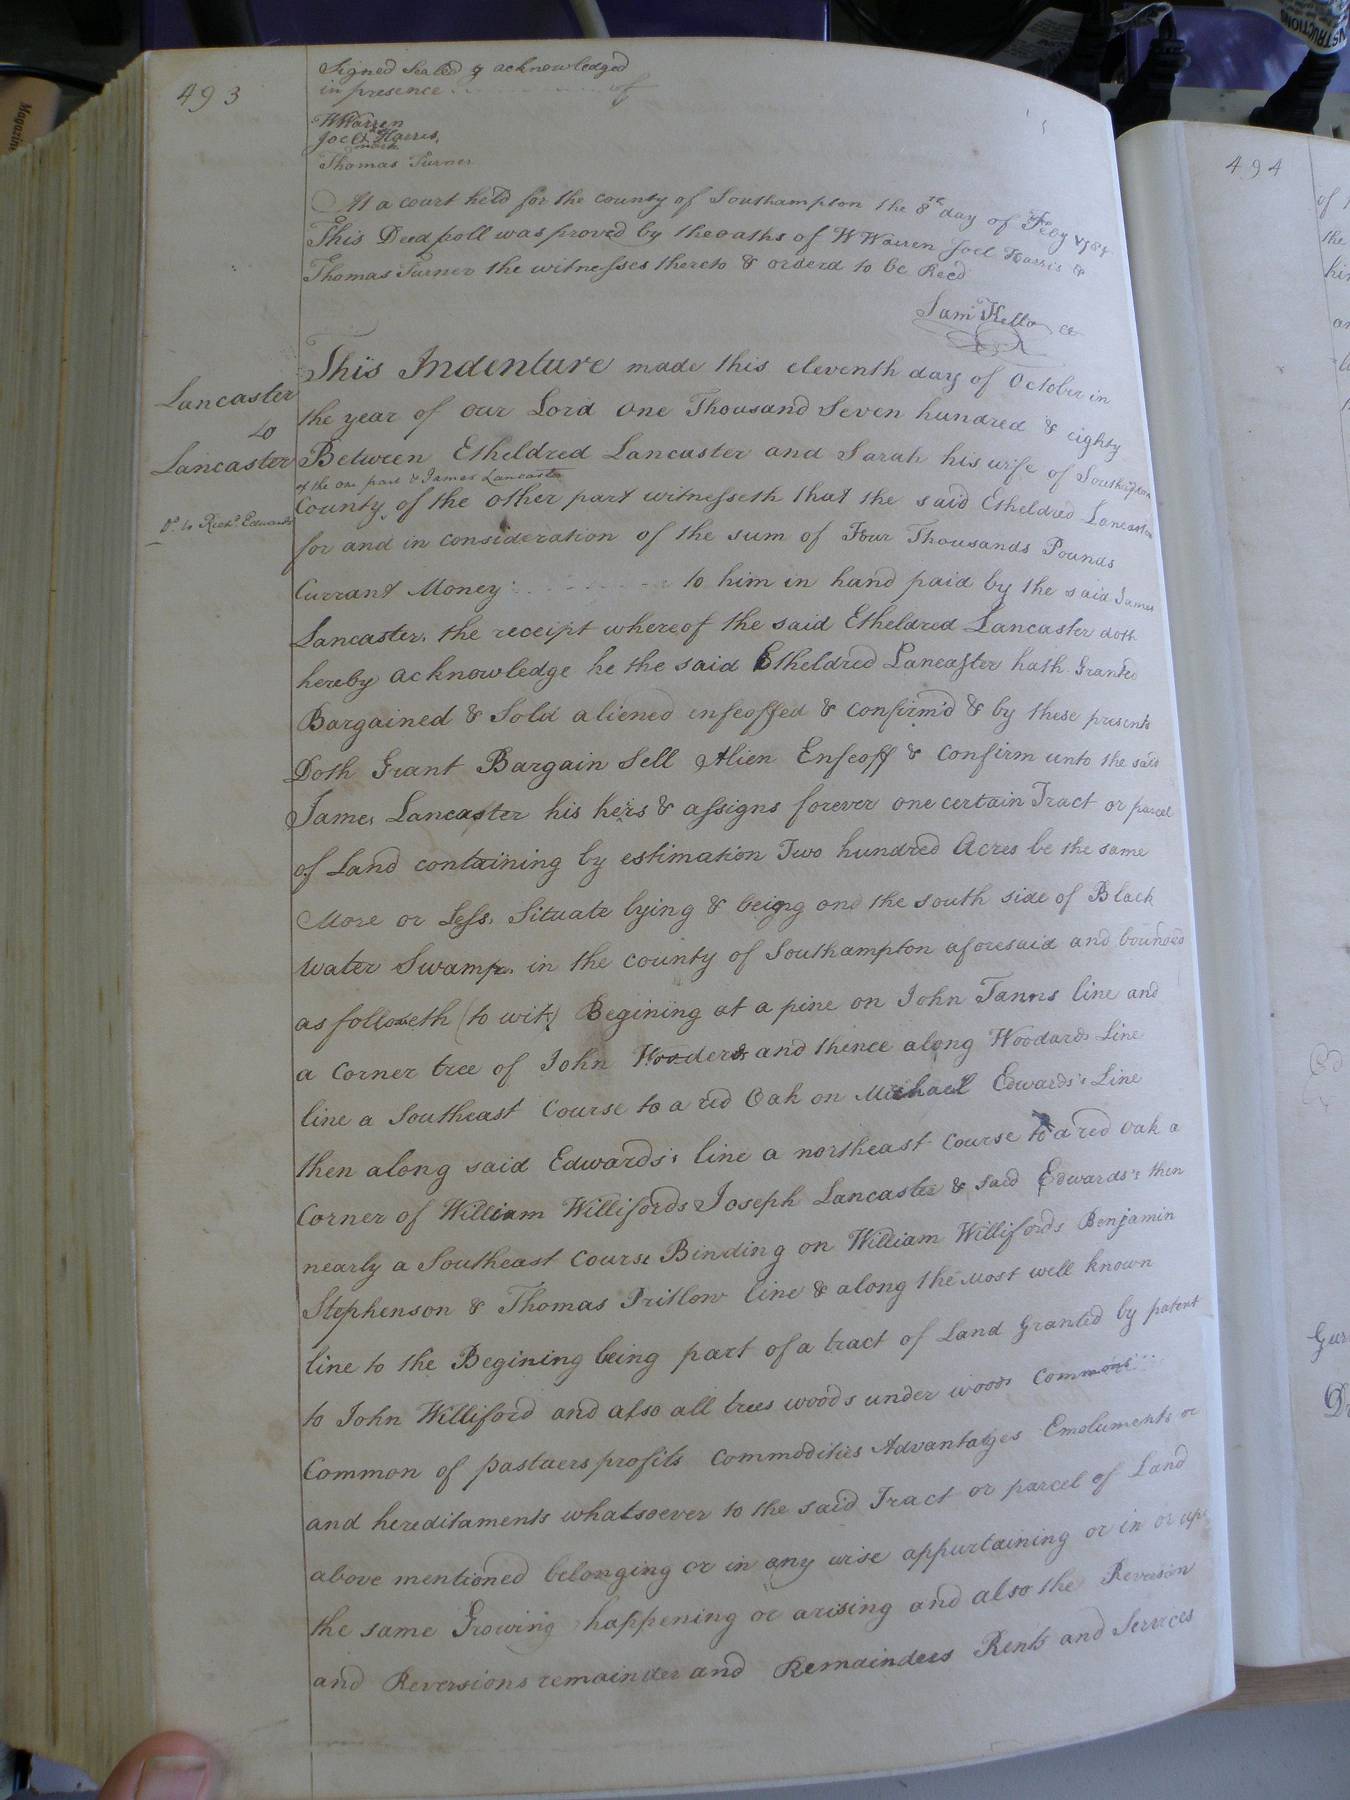 493
Signed Sealed & acknowledged
in presence of
W Warren
Joel Harris
mark
Thomas Turner
At a court held for the county of Southampton the 8th day of Feby
This Deed poll was proved by the oaths of W Warren Joel Harris &
Thomas Turner the witnesses thereto & orderd to be Recd
Sam Kello
Lancaster
to
Lancaster
Do to Richd Edwards
This Indenture made this eleventh day of October in
the year of our Lord one Thousand Seven hundred & eighty
Between Etheldred Lancaster and Sarah his wife of Southampton
of the one part & James Lancaster
County of the other part witnesseth that the said Etheldred Lancaster
for and in consideration of the sum of Four Thousands Pounds
Currant Money to him in hand paid by the said James
Lancaster, the receipt whereof the said Etheldred Lancaster doth
hereby acknowledge he the said Etheldred Lancaster hath Granted
Bargained & Sold aliened infeoffed & confirm'd & by these presents
Doth Grant Bargain Sell Alien Enfeoff & Confirm unto the said
James Lancaster his heirs & assigns forever one certain Tract or parcel
of Land containing by estimation Two hundred Acres be the same
More or Less, Situate lying & being one the south side of Black
water Swamp in the county of Southampton aforesaid and bounded
as followeth (to wit) Begining at a pine on John Tanns line and
a corner tree of John and thence along Woodards Line
line a Southeast Course to a red Oak on Michael Edwards's Line
then along said Edwards's line a northeast course to a red oak a
Corner of William Willifords Joseph Lancaster & said Edwards's then
nearly a Southeast Course Binding on William Willifords Benjamin
Stephenson & Thomas Pritlow line & along the Most well known
line to the Begining being part of a tract of Land Granted by patent
to John Williford and also all trees woods under woods Commons
Common of pastuers profits Commodities Advantages Emoluments or
and hereditaments whatsoever to the said Tract or parcel of Land
above mentioned belonging or in any wise appurtaining or in or upo
the same Growing happening or arising and also the Reversion
and Reversions remainder and Remainders Rents and Services
494